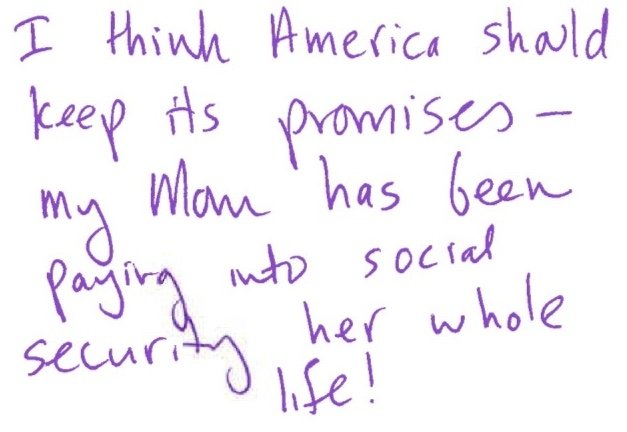 I think America should
keep its promises –
my Mom has been
paying into social
security her whole
life!